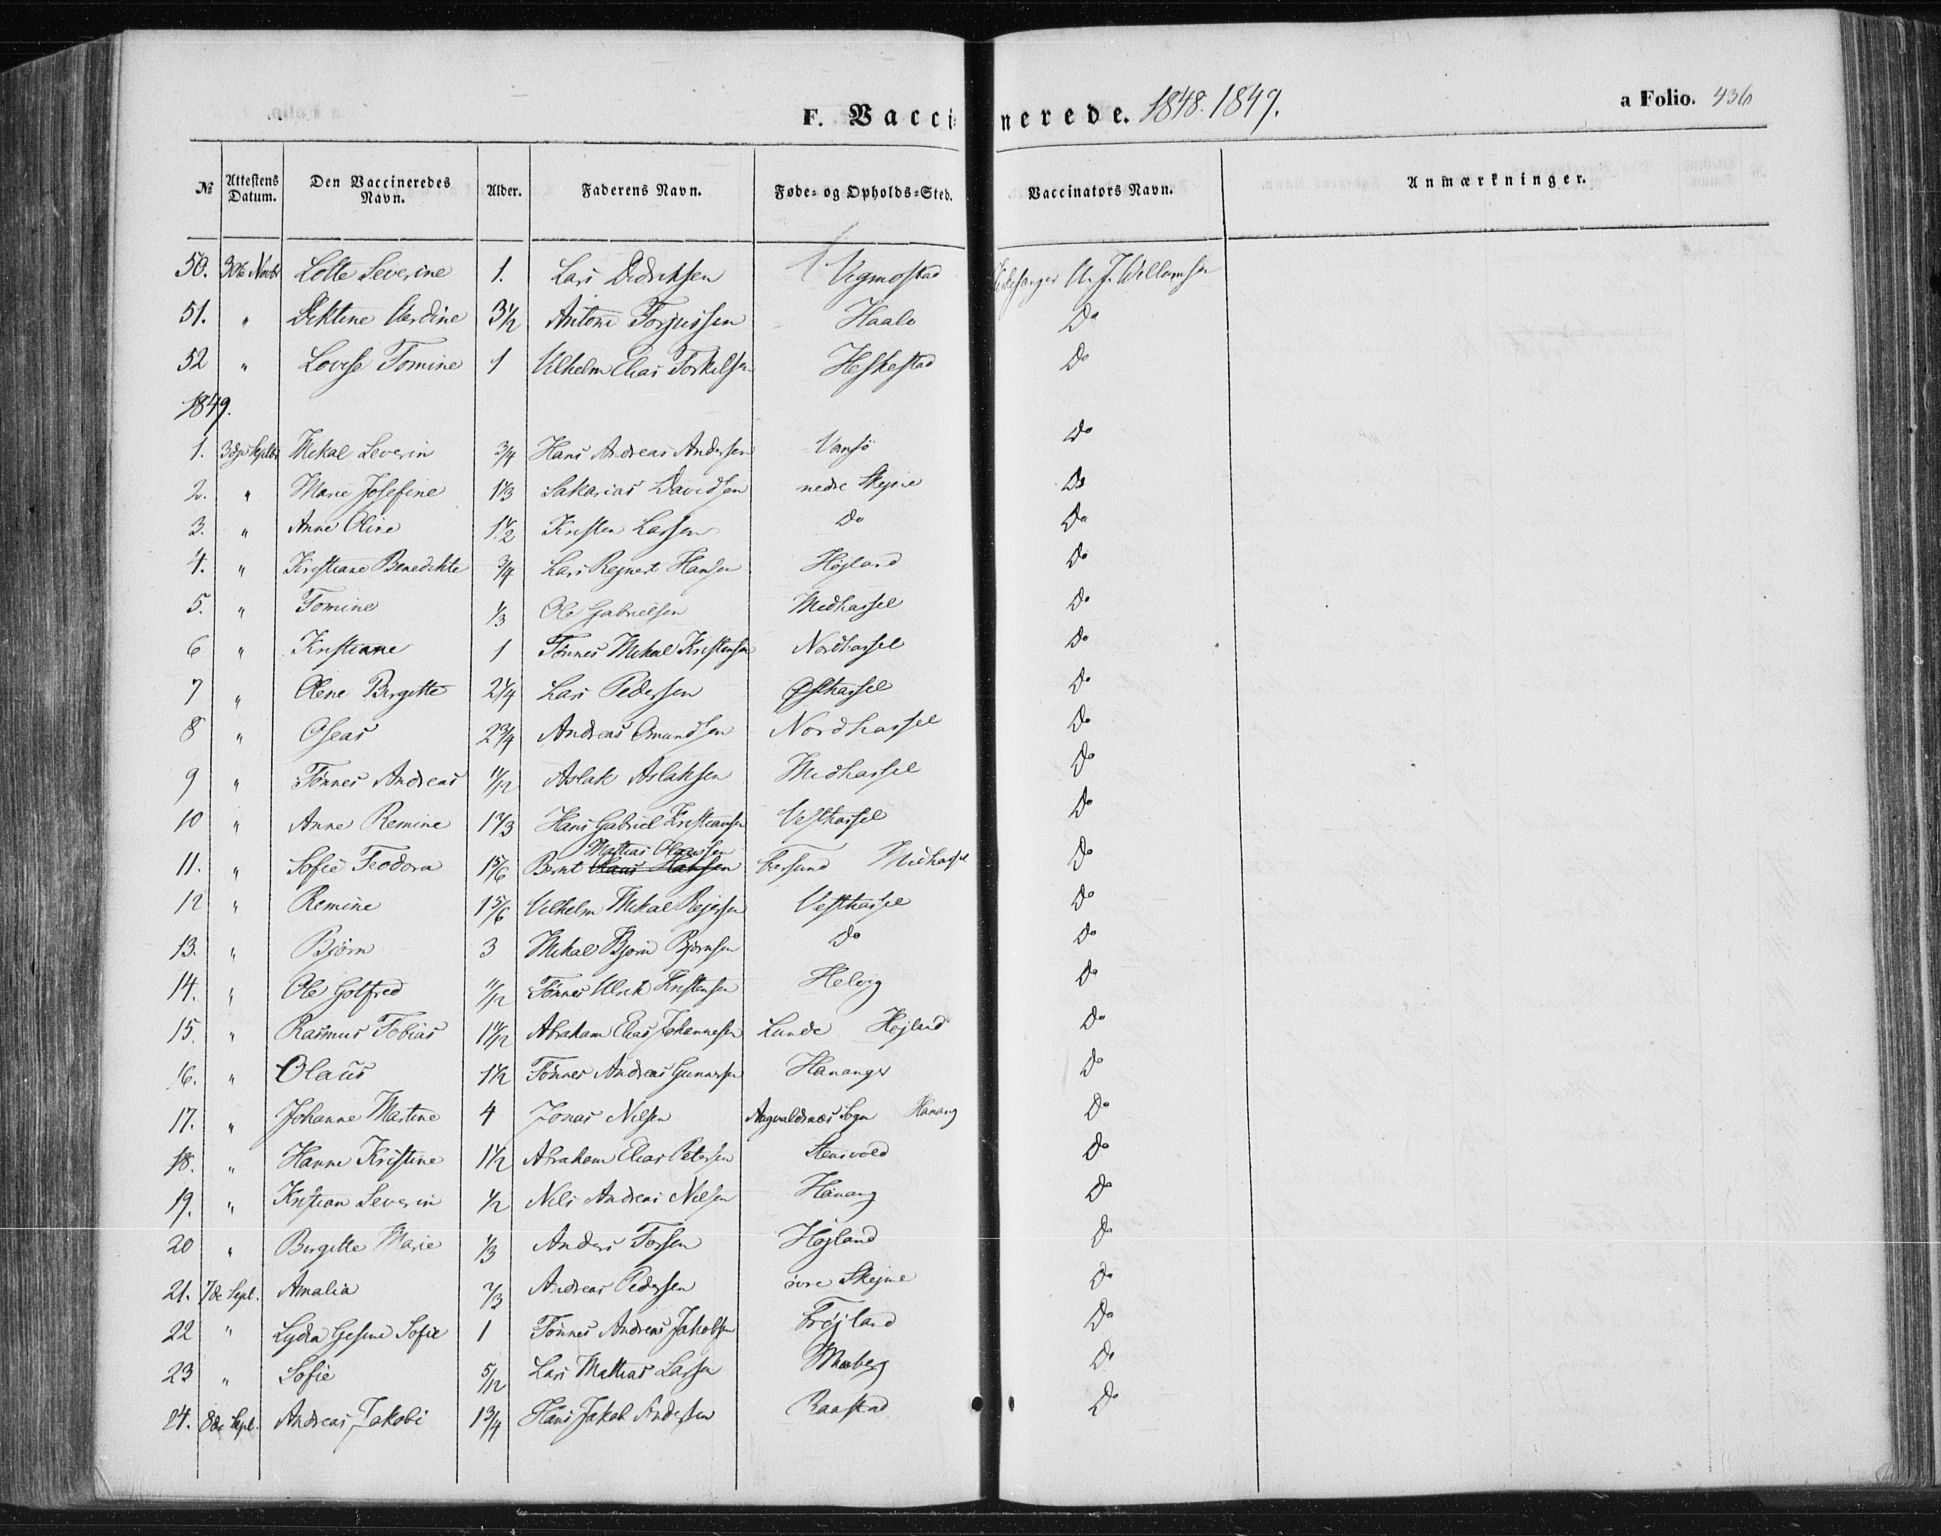 F. Vaccinerede. 1848. 1849. a Folio. 436
№ Attestens Datum. Den Vaccineredes Navn. Alder. Faderens Navn. Føde- og Opholds-Sted. Vaccinators Navn. Anmærkninger.
50. 30te Novbr Lotte Severine 1. Lars Didriksen Vigmostad Kirkesanger A. J. Willumsen
51. " Verdine 3½ Antoni Torjussen Haale Do
52 " Lovise Tomine 1 Vilhelm Elias Torkelsen Heskestad Do
1849.
1. 3dje Septbr Mekal Severin ¾ Hans Andreas Andersen Vansø Do
2. " Marie Josefine 1⅓ Sakarias Davidsen nedre Skejvie Do
3. " Anne Oline 1½ Kristen Larsen Do Do
4. " Kristiane Benedikte ¾ Lars Rejnert Hansen Højland Do
5. " Tomine ⅓ Ole Gabrielsen Midhassel Do
6 " Kristiane 1 Tønnes Mekal Kristensen Nordhassel Do
7 " Olene Birgitte 2¼ Lars Pedersen Østhassel Do
8 " Oseas 2¾ Andreas Omundsen Nordhassel Do
9 " Tønnes Andreas 11/12 Aslak Aslaksen Midhassel Do
10 " Anne Remine 1⅔ Hans Gabriel Kristiansen Vesthassel Do
11. " Sofie Teodora 1⅚ Bernt Mattias Olaussen Farsund Midhassel Do
12 " Remine 1⅚ Vilhelm Mekal Rejersen Vesthassel Do
13. " Bjørn 3 Mekal Bjørn Bjørnsen Do Do
14. " Ole Gotfred 11/12 Tønnes Ulrik Kristensen Helvig Do
15. " Rasmus Tobias Abraham Elias Johannesen Lunde Højland Do
16. " Olaus 1½ Tønnes Andreas Gunnersen Hananger Do
17. " Johanne Martine 4 Jonas Nilsen Augvaldsnæs Sogn Hanang Do
18. " Hanne Kristine 1½ Abraham Elias Petersen Stensvold Do
19. " Kristian Severin ½ Nils Andreas Nilsen Hanang Do
20 " Birgitte Marie ⅓ Anders Torsen Højland Do
21. 7de Sept. Amalia ⅔ Andreas Pedersen øvre Skejvie Do
22 " Lydia Gesine Sofie 1 Tønnes Andreas Jakobsen Frøjland Do
23 " Sofie 5/12 Lars Mattias Larsen Maberg Do
24. 8de Sept. Andreas Jakobi 1¾ Hans Jakob Andersen Baastad Do